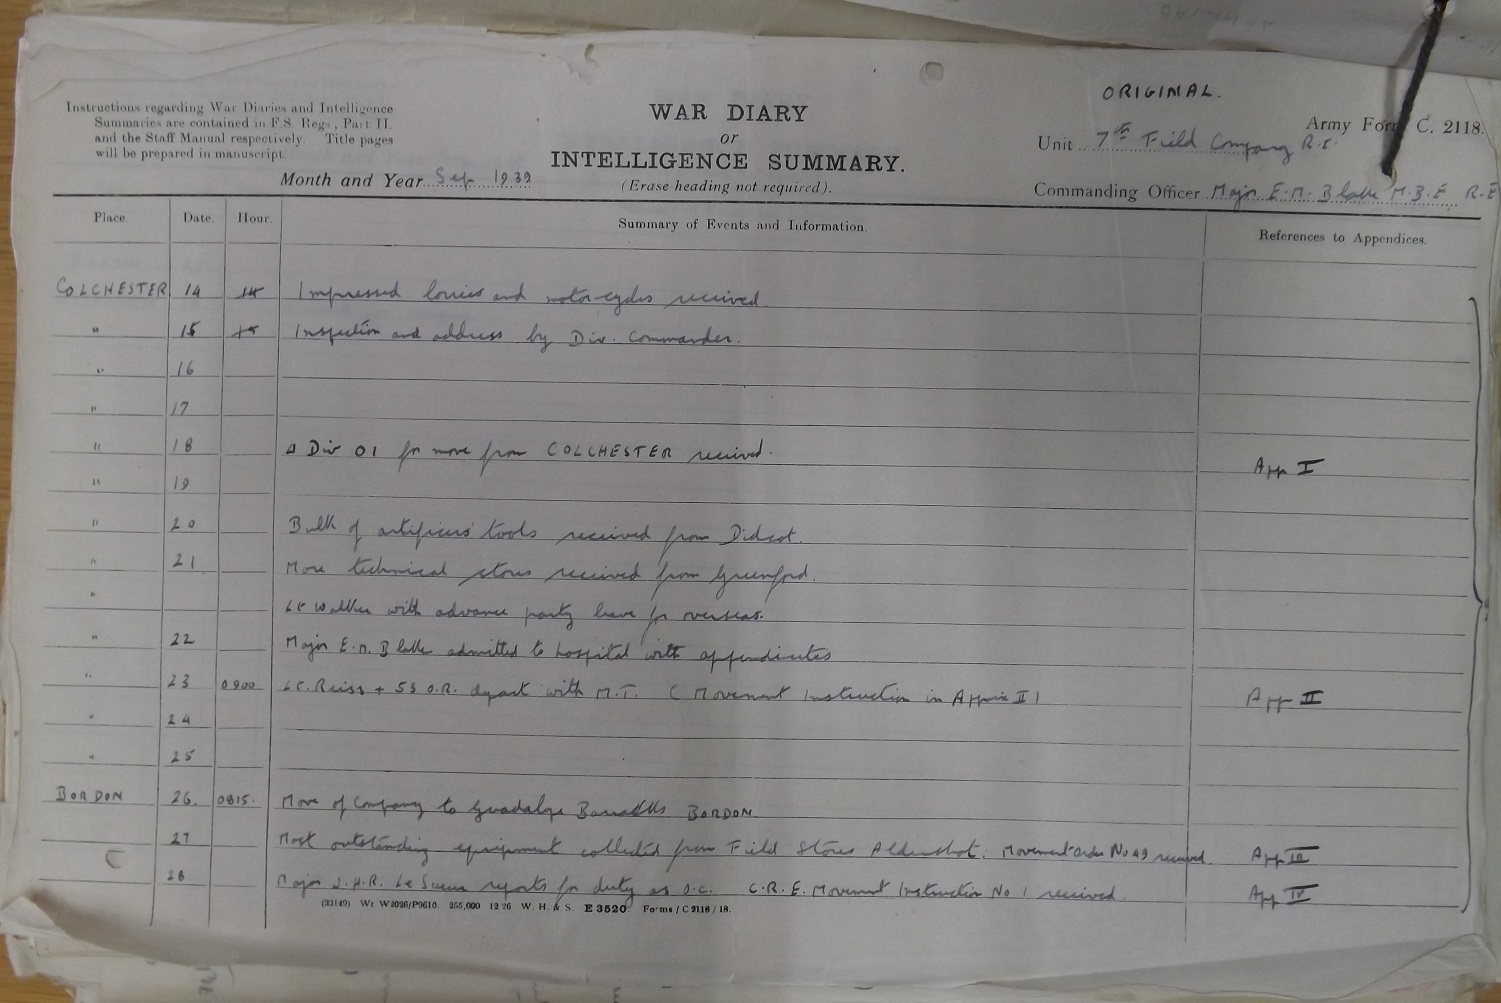 ORIGINAL.
Instructions regarding War Diaries and Intelligence
Summaries are contained in F.S. Regs., Part II.
and the Staff Manual respectively. Title pages
will be prepared in manuscript.
WAR DIARY
or
INTELLIGENCE SUMMARY.
(Erase heading not required).
Month and Year Sep 1939
Army Form C. 2118.
Unit 7th Field Company R.E.
Commanding Officer Major E.M. Blake M.B.E. R.E
Place. Date. Hour. Summary of Events and Information. References to Appendices.
COLCHESTER 14 14 Impressed lorries and motor-cycles received
" 15 15 Inspection and address by Div. Commander.
" 16
" 17
" 18 4 Div O1 for move from COLCHESTER received. App I
" 19
" 20 Bulk of artificers' tools received from Didcot.
" 21 More technical stores received from Greenford.
" Lt Walker with advance party leave for overseas.
" 22 Major E.M. Blake admitted to hospital with appendicitis
" 23 0900 Lt. Reiss + 53 O.R. depart with M.T. ( Movement Instruction in Appx II ) App II
" 24
" 25
BORDON 26. 0815. Move of Company to Guadalope Barracks BORDON.
27 Most outstanding equipment collected from Field Stores Aldershot. Movement Order No 49 received. App III
28 Major J.H.R. Le Sueur reports for duty as O.C. C.R.E. Movement Instruction No 1 received. App IV
(33149) Wt W2026/P9610. 255,000 12 26 W. H. & S. E 3520 Forms / C 2118 / 18.